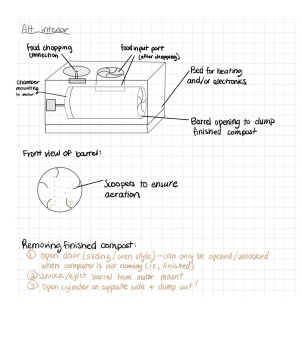 Alt interior
food chopping
connection
food input port
(after chopping)
chamber
mounting
to motor
Bed for heating
and/or electronics
Barrel opening to dump
finished compost
Front view of barrel:
Scoopers to ensure
aeration
Removing finished compost:
① Open door (sliding / oven style) - can only be opened/unlocked
when composter is not running (ie, finished)
② Unlock/eject barrel from motor mount
③ Open cylinder on opposite side + dump out!